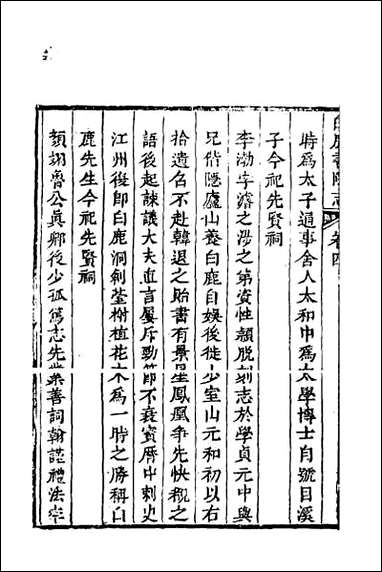 白鹿書院志 卷四
時為太子通事舍人太和中為太學博士自號目溪
子今祀先賢祠
李渤字濬之涉之第資性穎脫刻志於學貞元中與
兄偕隱廬山養白鹿自娛後徙少室山元和初以右
拾遺召不赴韓退之貽書有景星鳳凰爭先快覩之
語後起諫議大夫直言屢斥勁節不衰寳厤中刺史
江州後即白鹿洞創䑓榭植花木為一時之勝稱白
鹿先生今祀先賢祠
顏詡魯公真卿後少孤篤志先業善詞翰謹禮法率